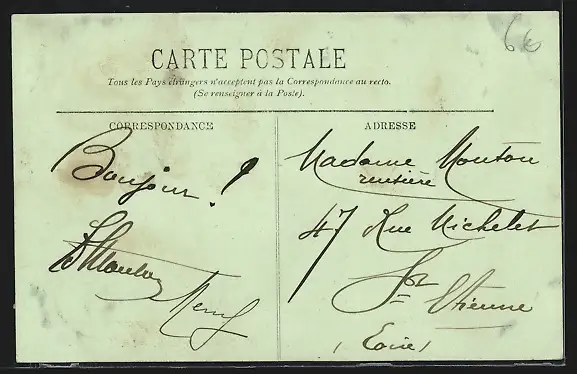 6€
CARTE POSTALE
Tous les Pays étrangers n'acceptent pas la Correspondance au recto.
(Se renseigner à la Poste).
CORRESPONDANCE
Bonjour !
ADRESSE
Madame Mouton
rentière
47 Rue Michelet
St Etienne
(Loire)